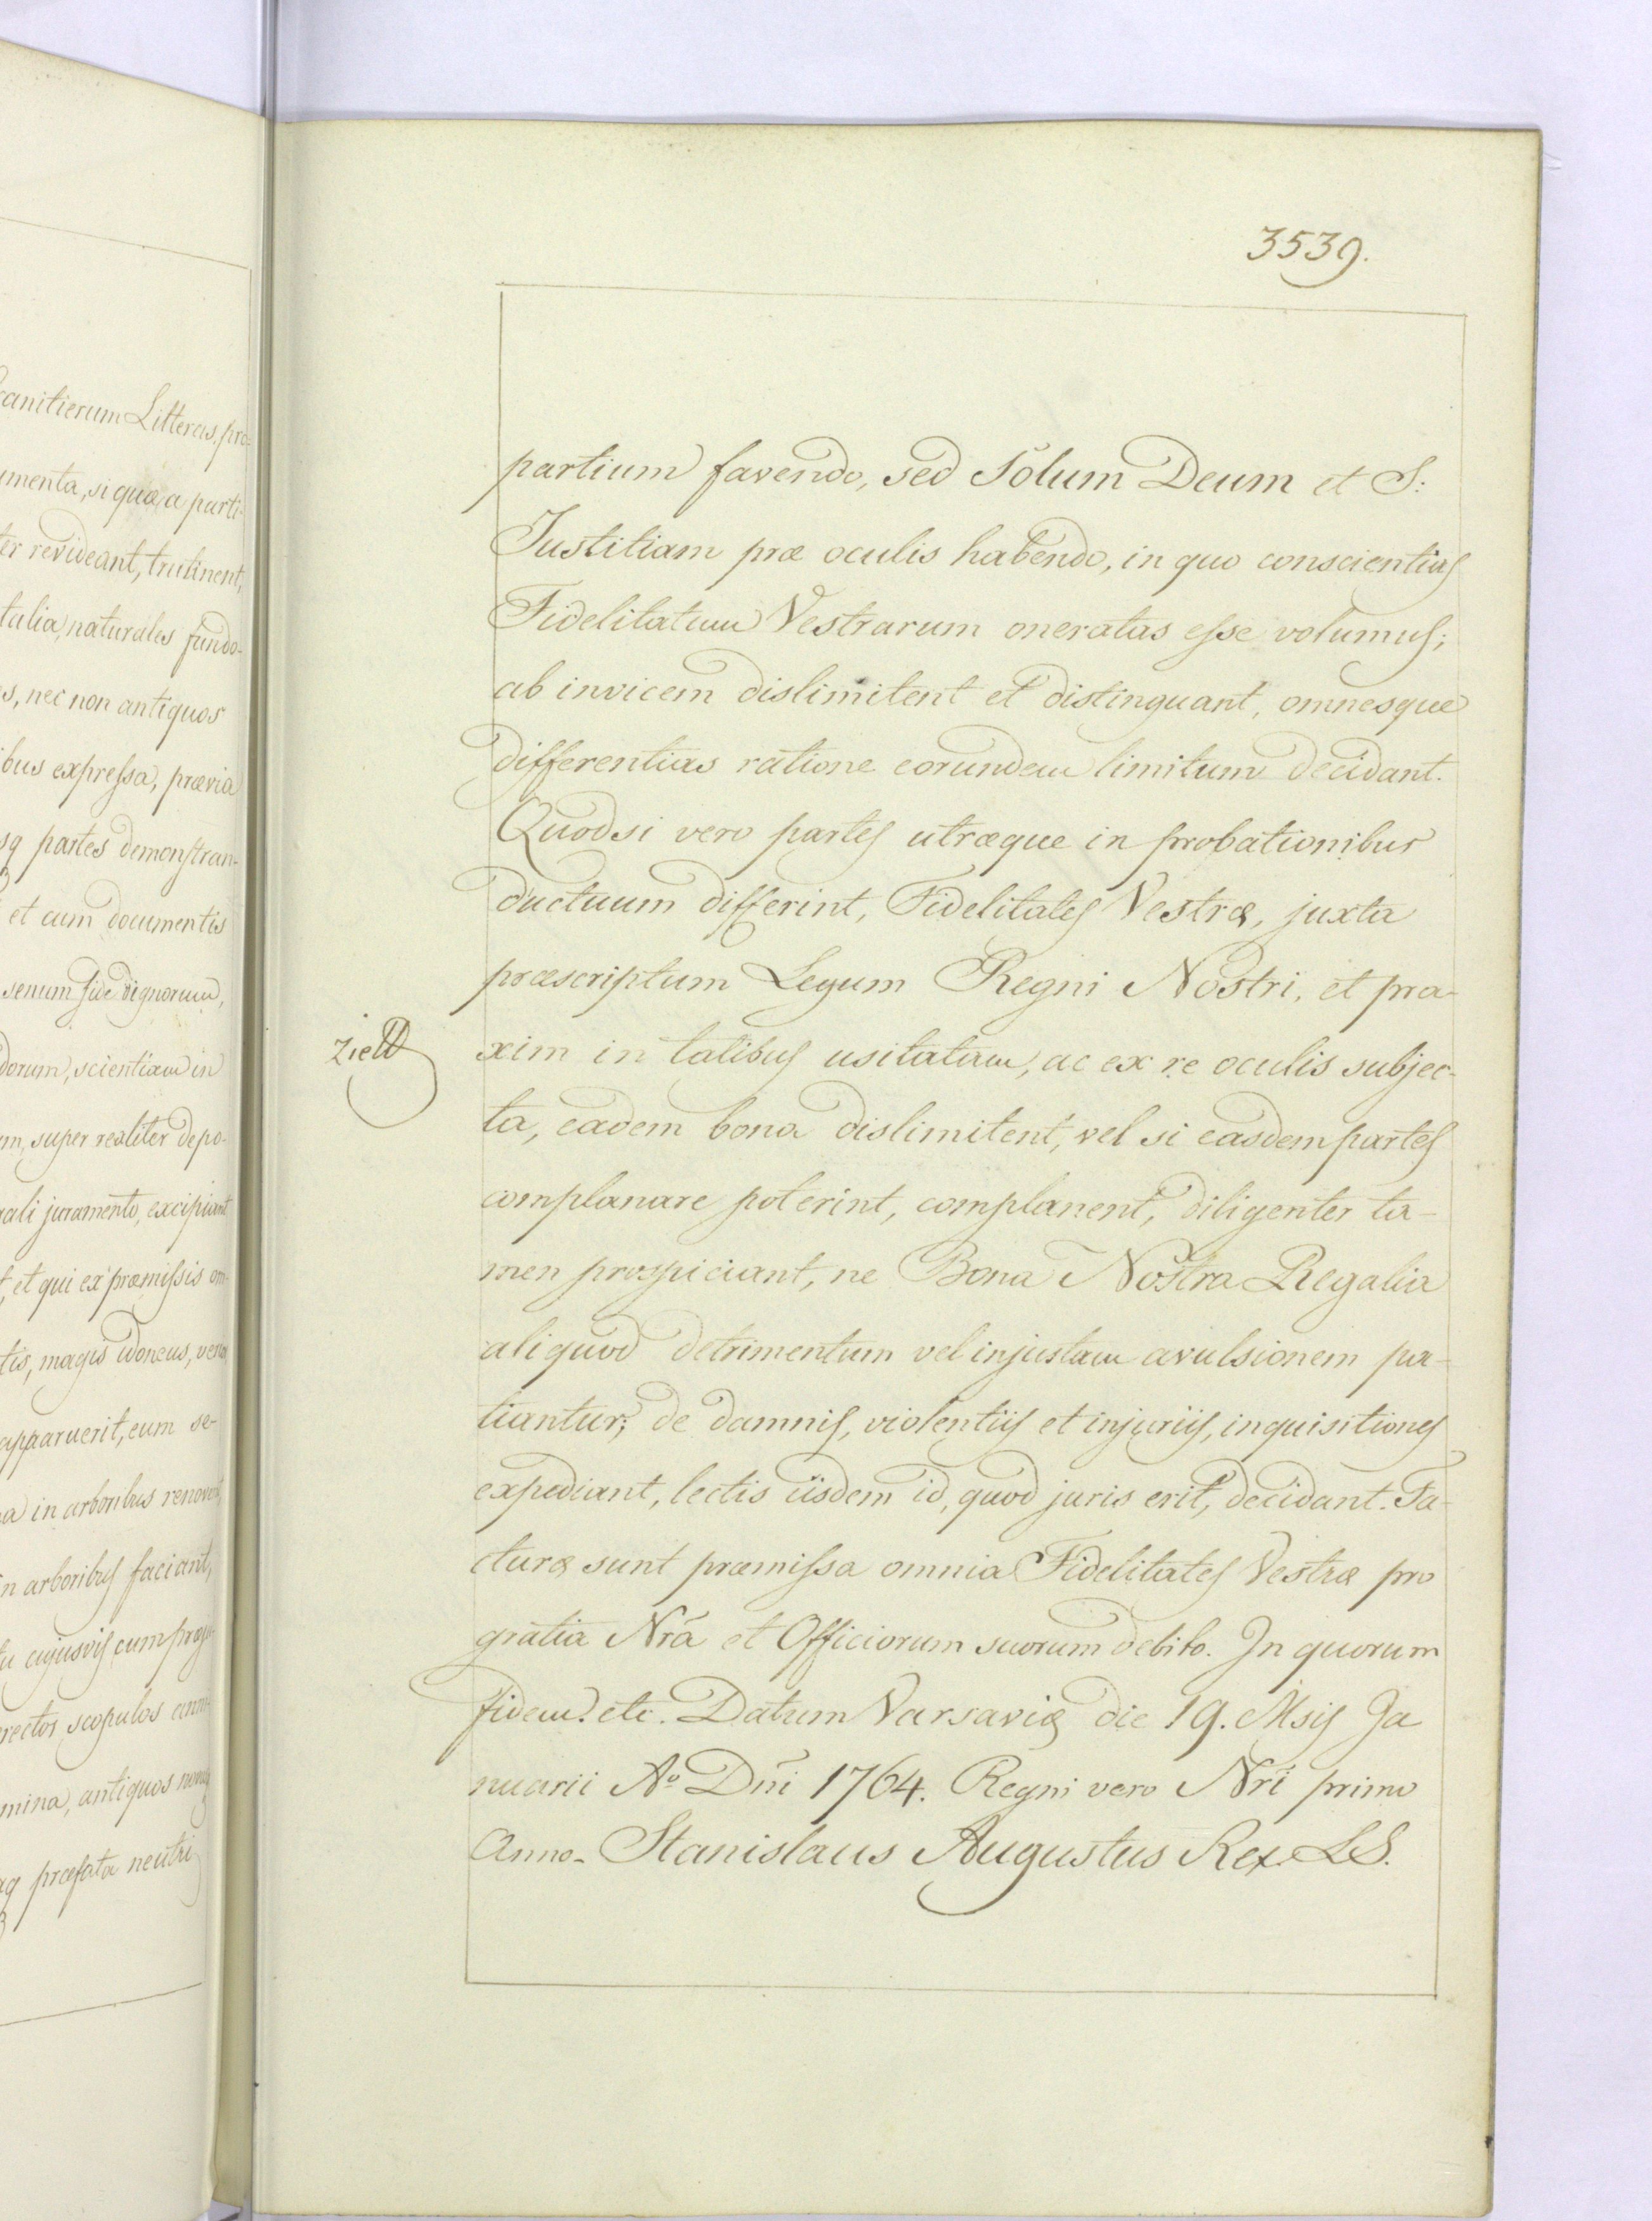 canitierum Litteras, pro-
umenta, si quæ a parti-
ter revideant, trutinent,
talia, naturales fundo-
s, nec non antiquos
ibus expressa, prævia
sq partes demonstran-
et cum documentis
senum fide dignorum,
dorum, scientiam in
m, super realiter depo-
rali juramento, excipiant
, et qui ex præmissis om-
tis, magis idoneus, ve
apparuerit, eum se-
a in arboribus renovent,
n arboribus faciant,
tu cujusvis cum
rectos scopulos
mina, antiquos
aq præfata neutri
3539.
partium favendo, sed Solum Deum et S:
Justitiam præ oculis habendo, in quo conscientias
Fidelitatum Vestrarum oneratas esse volumus;
ab invicem dislimitent et distinguant, omnesque
differentias ratione eorundem limitum decidant.
Quodsi vero partes utræque in probationibus
ductuum differint, Fidelitates Vestræ, juxta
præscriptum Legum Regni Nostri, et pra-
Zielł
xim in talibus usitatam, ac ex re oculis subjec-
ta, eadem bona dislimitent, vel si easdem partes
complanare poterint, complanent, diligenter ta-
men prospiciant, ne Bona Nostra Regalia
aliquod detrimentum vel injustam avulsionem pa-
tiantur; de damnis, violentiis et injuriis, inquisitiones
expediant, lectis iisdem id, quod juris erit, decidant. Fa-
cturæ sunt præmissa omnia Fidelitates Vestræ pro
gratia Nrã et Officiorum suorum debito. In quorum
fidem. etc. Datum Varsaviæ die 19. Msis Ja
nuarii Aº Dñi 1764. Regni vero Nri primo
Anno. Stanislaus Augustus Rex. LS.